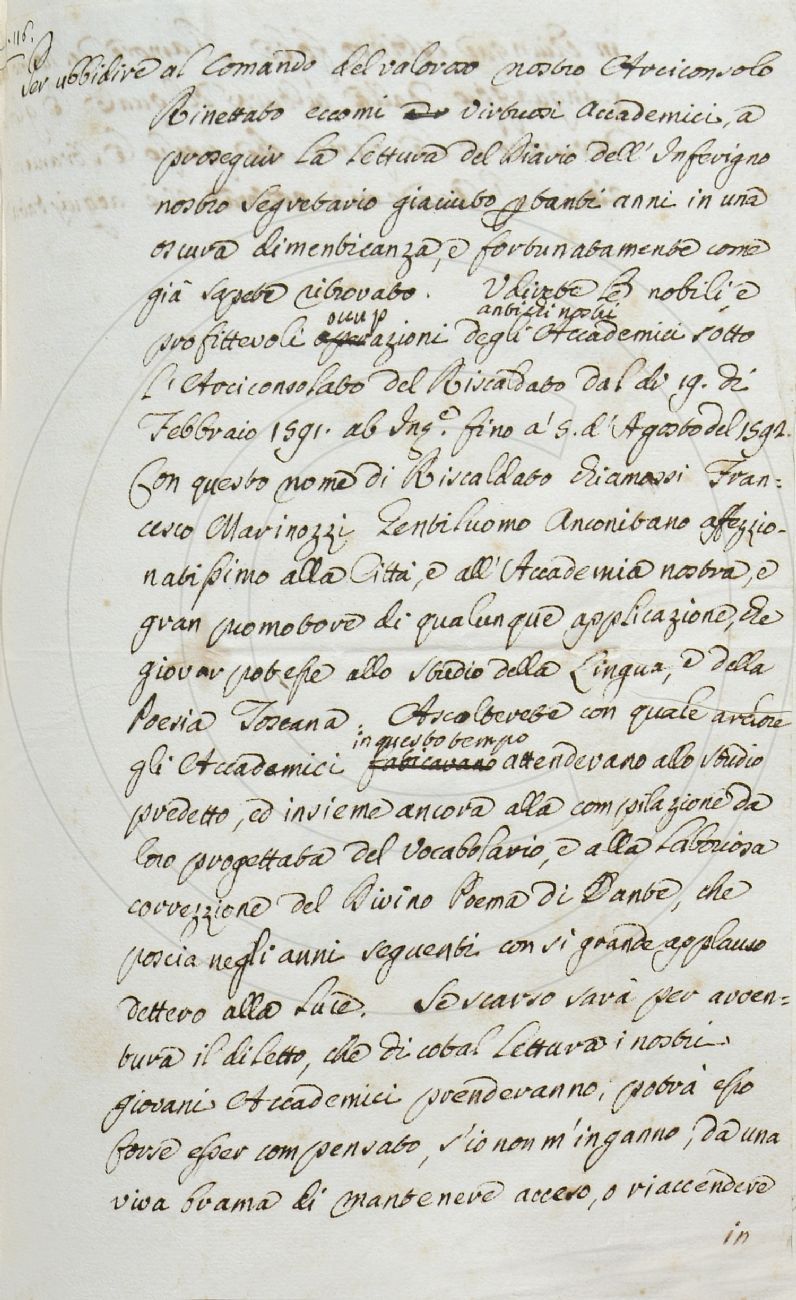 116.
Per ubbidire al Comando del valoroso nostro Arciconsolo
Rinettato eccomi virtuosi Accademici, a
proseguir la lettura del Diario dell' Inferigno
nostro Segretario giaciuto p tanti anni in una
oscura dimenticanza, e fortunatamente come
già sapete ritrovato. Udirete le nobili e
occup antichi nostri
profittevoli operazioni degli Accademici sotto
l'Arciconsolato del Riscaldato dal dì 19. di
Febbraio 1591. ab Ing.e fino a' 5. d'Agosto del 1592.
Con questo nome di Riscaldato chiamossi Fran=
cesco Marinozzi Gentiluomo Anconitano affezzio-
natissimo alla Città, e all'Accademia nostra, e
gran promotore di qualunque applicazione, che
giovar potesse allo studio della Lingua, e della
Poesia Toscana. Ascolterete con quale ardore
in questo tempo
gli Accademici faticavano attendevano allo studio
predetto, ed insieme ancora alla compilazione da
loro progettata del Vocabolario, e alla laboriosa
correzzione del Divino Poema di Dante, che
poscia negli anni seguenti con si grande applauso
dettero alla luce. Se scarso sarà per avven=
tura il diletto, che di cotal Lettura i nostri
giovani Accademici prenderanno, potrà esso
forse esser compensato, s'io non m'inganno, da una
viva brama di mantenere acceso, o riaccendere
in